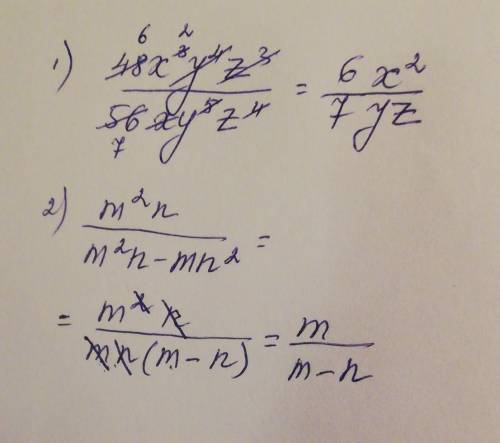 1) 48x³y⁴z³ / 56xy⁵z⁴ = 6x² / 7yz
2) m²n / m²n-mn² =
= m²n / mn(m-n) = m / m-n